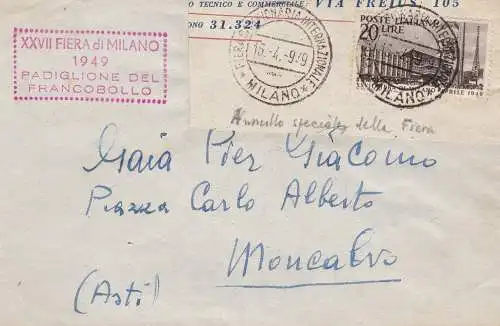 TECNICO E COMMERCIALE: VIA FREJUS, 105
ONO 31.324
XXVII FIERA di MILANO
1949
PADIGLIONE DEL
FRANCOBOLLO
INTERNAZIONALE
15.-4.-949
* MILANO *
POSTE ITALIANE
20 LIRE
MILANO
APRILE 1949
Annullo speciale della Fiera
Gaia Pier Giacomo
Piazza Carlo Alberto
Moncalvo
(Asti)